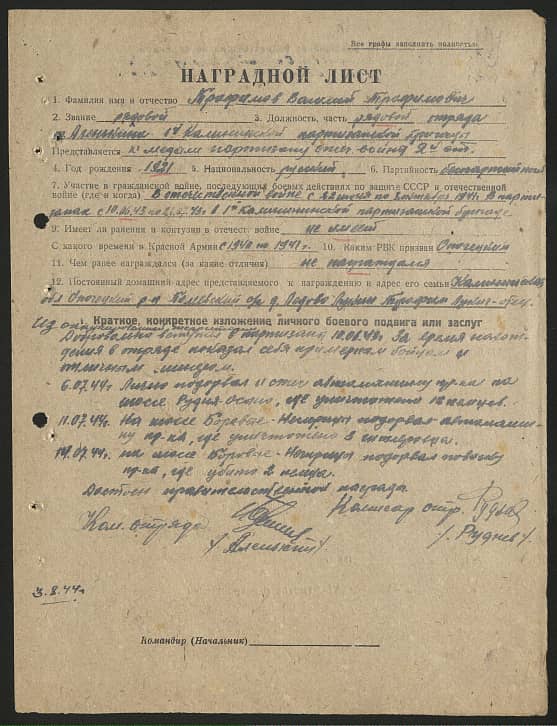 Все графы заполнять полностью.
НАГРАДНОЙ ЛИСТ
1. Фамилия имя и отчество Трофимов Василий Трофимович
2. Звание рядовой 3. Должность, часть рядовой отряда
1й Калининской партизанской бригады
Представляется к медали партизану отеч. войны 2й ст.
4. Год рождения 1921 5. Национальность русский 6. Партийность беспартийный
7. Участие в гражданской войне, последующих боевых действиях по защите СССР и отечественной
войне (где и когда) в отечественной войне с 22 июня по 1941г. В парти-
занах с в 1й Калининской партизанской бригаде
9. Имеет ли ранения и контузии в отечест. войне не имеет
С какого времени в Красной Армии с 1940 по 1941 г. 10. Каким РВК призван Опочецким
11. Чем ранее награждался (за какие отличия) не награждался
12. Постоянный домашний адрес представляемого к награждению и адрес его семьи Калининская
обл Опочецкий р-н с/с д. Трофим отец.
I. Краткое, конкретное изложение личного боевого подвига или заслуг
Добровольно вступил в партизаны За время нахож-
дения в отряде показал себя примерным бойцом и
отличным
6.07.44г. Лично подорвал и сжег автомашину пр-ка на
шоссе где уничтожено 12 немцев.
11.07.44г. На шоссе Боровые - подорвал автомаши-
ну пр-ка, где уничтожено 3
14.07.44г. на шоссе Боровые - подорвал повозку
пр-ка, где убито 2 немца.
Достоин правительственной награды.
Ком. отряда Комисар отр.
/Руднев/
3.8.44г.
Командир (Начальник)